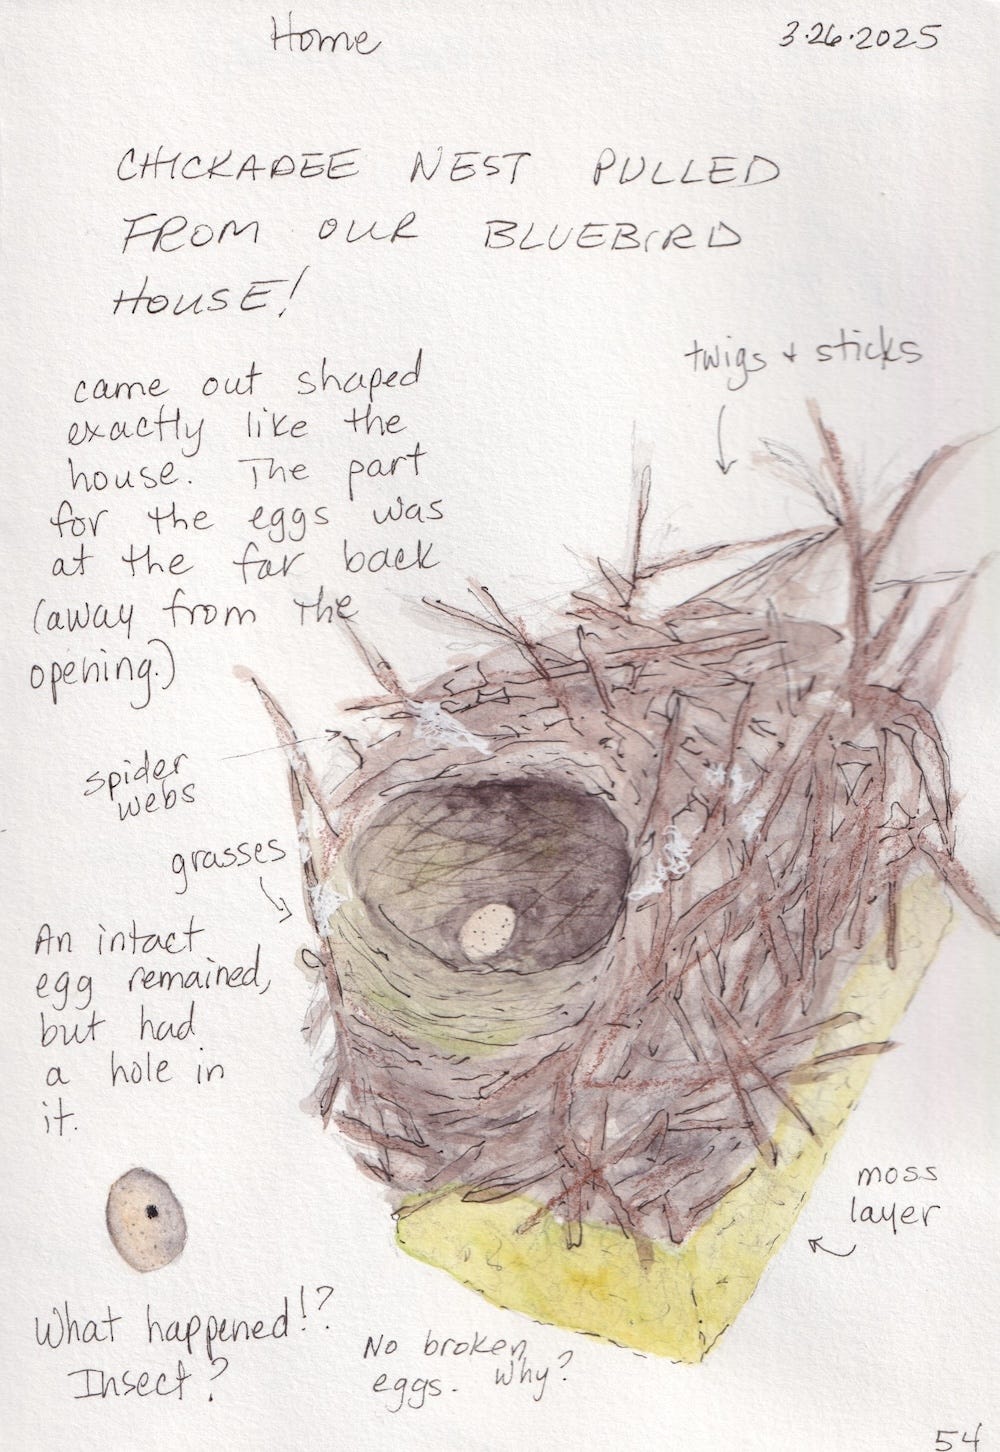 Home
3.26.2025
CHICKADEE NEST PULLED
FROM OUR BLUEBIRD
HOUSE!
came out shaped
exactly like the
house. The part
for the eggs was
at the far back
(away from the
opening.)
twigs + sticks
spider
webs
grasses
An intact
egg remained,
but had
a hole in
it.
moss
layer
What happened!?
Insect?
No broken
eggs. Why?
54